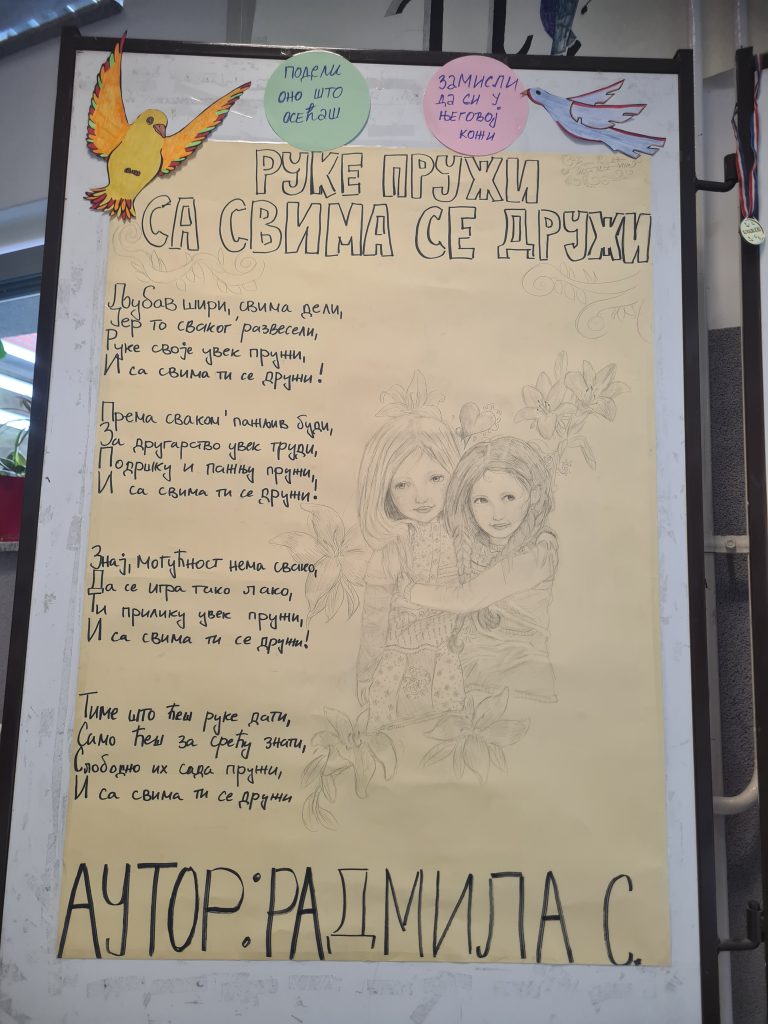 ПОДЕЛИ
ОНО ШТО
ОСЕЋАШ
ЗАМИСЛИ
ДА СИ У
ЊЕГОВОЈ
КОЖИ
РУКЕ ПРУЖИ
СА СВИМА СЕ ДРУЖИ
Љубав шири, свима дели,
Јер то сваког' развесели,
Руке своје увек пружи,
И са свима ти се дружи!
Према сваком' пажљив буди,
За другарство увек труди,
Подршку и пажњу пружи,
И са свима ти се дружи!
Знај, могућност нема свако,
Да се игра тако лако,
Ти прилику увек пружи,
И са свима ти се дружи!
Тиме што ћеш руке дати,
Само ћеш за срећу знати,
Слободно их сада пружи,
И са свима ти се дружи
АУТОР:РАДМИЛА С.